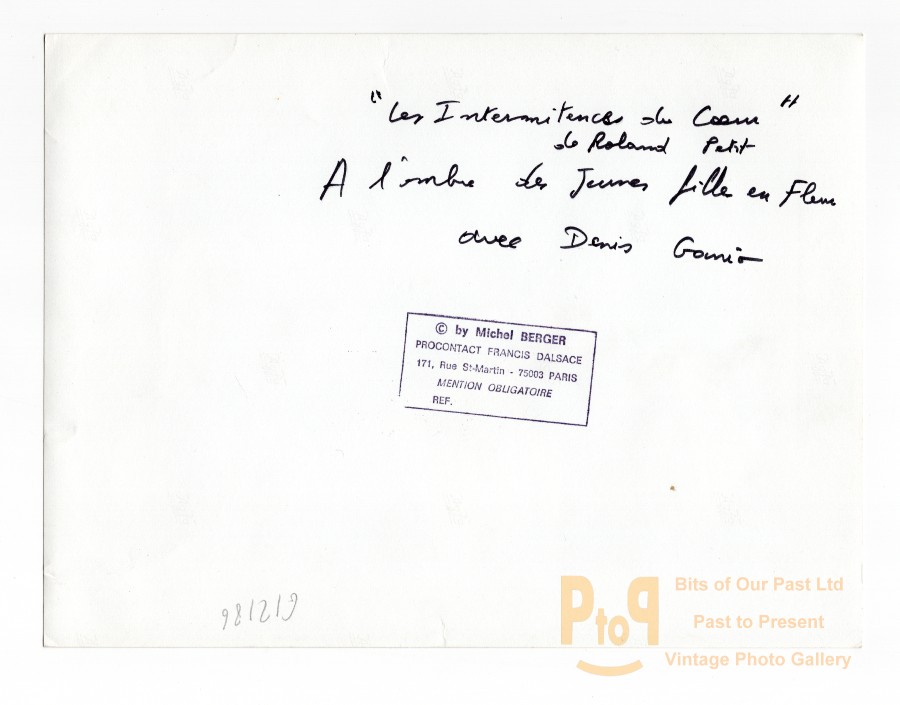 "Les Intermitences du Coeur"
de Roland Petit
A l'ombre des Jeunes filles en Fleur
avec Denis Ganio
© by Michel BERGER
PROCONTACT FRANCIS DALSACE
171, Rue St-Martin - 75003 PARIS
MENTION OBLIGATOIRE
REF.
G12186
PtoP
Bits of Our Past Ltd
Past to Present
Vintage Photo Gallery